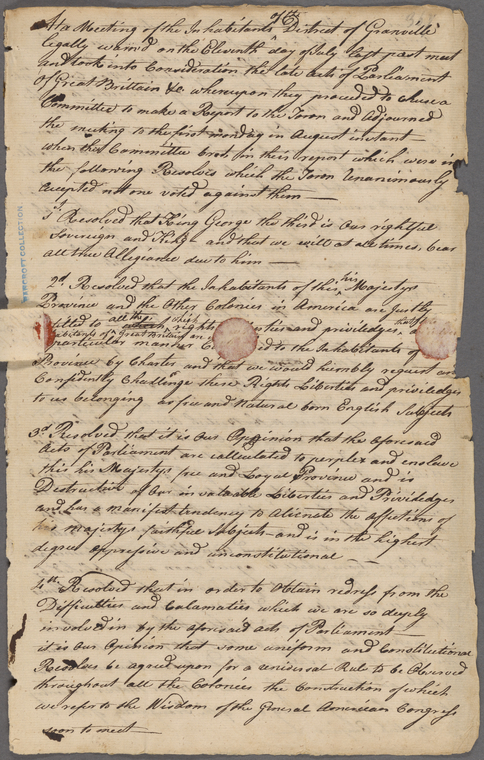 At a Meeting of the Inhabitants of the District of Granville
legally warn'd on the Eleventh day of July last past meet
and took into Consideration the late Acts of Parliament
of Great Brittain &c whereupon they proceeded to chuse a
Committee to make a Report to the Town and Adjourned
the meeting to the first monday in August instant
when this Committee brot in their report which were in
the following Resolves which the Town Unanimously
Accepted not one voted against them —
1st Resolved that King George the third is Our rightful
Sovereign and King and that we will at all times, bear
all true Allegiance due to him —
2d. Resolved that the Inhabitants of this his Majestys
Province and the Other Colonies in America are justly
to all the rights and priviledges, that
Inhabitants of Great Brittain
particular manner to the Inhabitants of
Province by Charter and that we would humbly request and
Confidently Challenge these Rights Liberties and priviledges
to us belonging as free and Natural born English Subjects
3d. Resolved that it is Our Oppinion that the aforesaid
Acts of Parliament are calculated to perplex and enslave
this his Majestys free and Loyal Province and is
Destructive of Our invaluable Liberties and Priviledges
and has a manifest tendency to Alienate the affections of
his majestys faithful Subjects and is in the highest
degree oppressive and unconstitutional —
4th. Resolved that in order to Obtain redress from the
Difficulties and Calamaties which we are so deeply
involved in by the aforesaid acts of Parliament —
it is Our Opinion that some uniform and Constitutional
Resolves be agreed upon for a universal Rule to be Observed
throughout all the Colonies the Construction of which
we refer to the Wisdom of the General American Congress
soon to meet —
BANCROFT COLLECTION